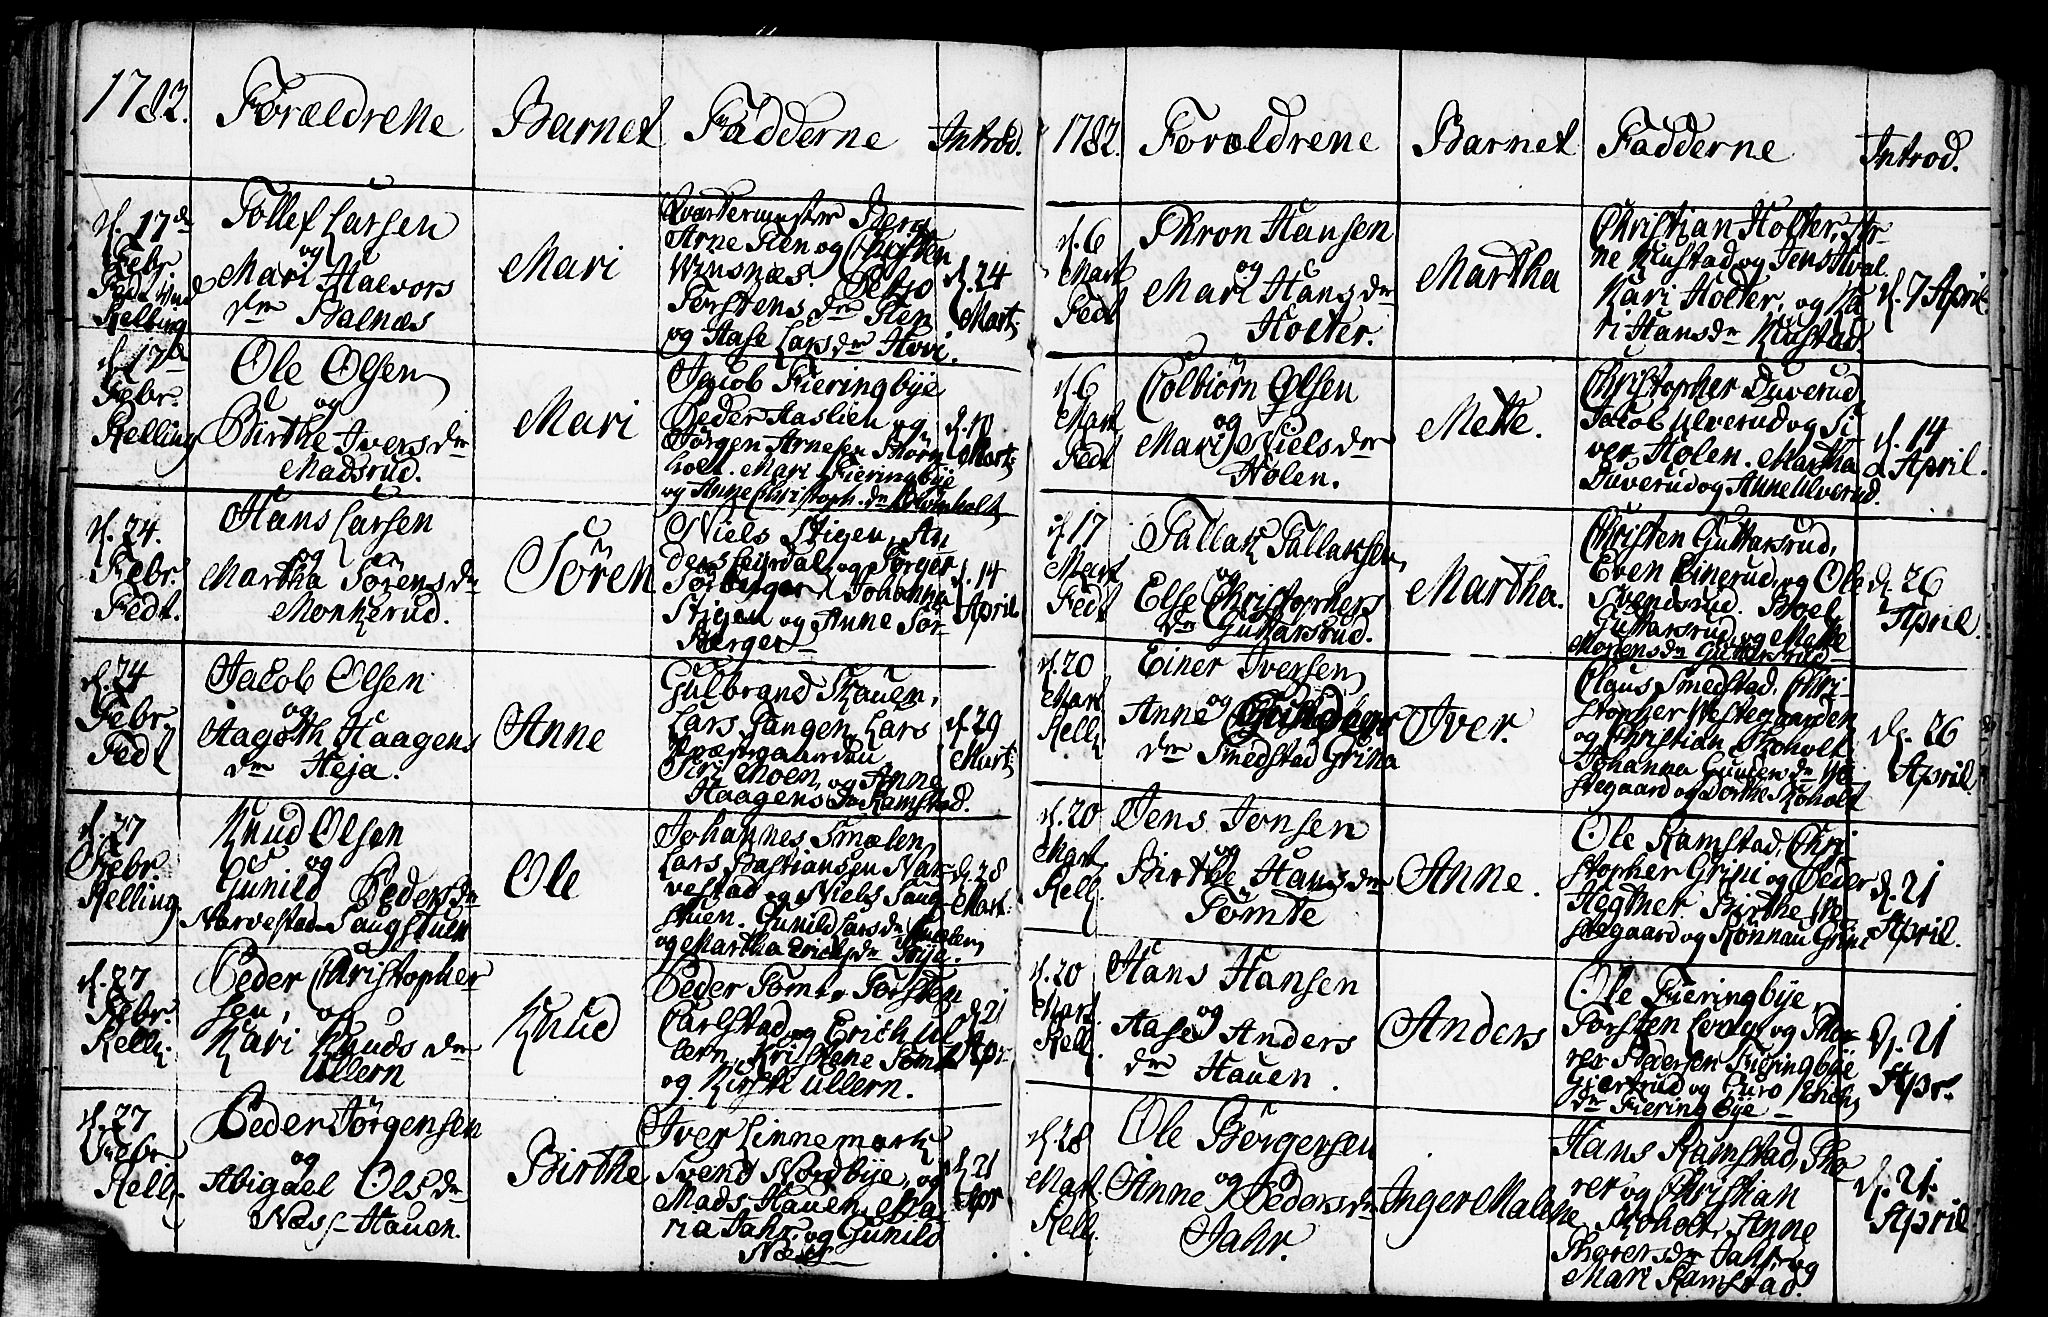 1782.
Forældrene
Barnet
Fadderne
Introd.
d. 17de
Febr.
Fedt
Kelling
Tollef Larsen
og
Mari Halvors
dr Balnæs
Mari
Qvartermester Berg
Arne Fien og Christen
Winsnæs.
Torstens dr Fien
og Aase Lars dr Hovi.
d. 24
Mart:
d. 17de
Febr.
Kelling
Ole Olsen
og
Birthe Ivers dr
Madsrud.
Mari
Jacob Fieringbye
Peder Haslien og
Jørgen Arnesen Biørn
holt. Mari Fieringbye
og Anne Christoph. dr
d. 10
Mart:
d. 24.
Febr.
Fedt.
Hans Larsen
og
Martha Sørens dr
Monkerud.
Sören
Niels Stigen, An
ders Leirdal og Torger
Sørberger. Johanna
Stigen og Anne Sör
berger
d. 14
April
d. 24
Febr.
Fedt
Jacob Olsen
og
Aagoth Haagens
dr Heja.
Anne
Gulbrand Skauen,
Lars Vangen, Lars
Siri Moen, og Anne
Haagens dr Ramstad.
d. 29
Mart:
d. 27
Febr.
Kelling
Knud Olsen
og
Gunild Peders dr
Narvestad-Saugstuen
Ole
Johannes Smælen
Lars Bastiansen Nar-
vestad og Niels Saug-
stuen. Gunild Lars dr Smælen
og Martha Erichs dr
d. 28
Mart:
d. 27
Febr.
Kell:
Peder Christopher
sen, og
Kari Knuds dr
Ullern
Knud
Peder Tomte, Torsten
Carlstad og Erich Ul
lern, Kristene Tomte
og Kirsti Ullern.
d. 21
Apr.
d. 27
Febr
Kell:
Peder Jörgensen
og
Abigael Ols dr
Næss-Hauen.
Birthe
Iver Linnemark
Svend Nordbye, og
Mads Hauen, Ma
ria Jahr, og Gunild
Næss
d. 21
Apr
1782.
Forældrene
Barnet
Fadderne
Introd.
d. 6
Mart
Fedt
Thron Hansen
og
Mari Hans dr
Holter.
Martha
Christian Holter, Ar-
ne Kiustad og Jens Hval.
Kari Holter, og Ka
ri Hans dr Kiustad
d. 7 April
d. 6
Mart
Fedt
Colbiörn Olsen
og
Mari Niels dr
Holen.
Mette.
Christopher Duverud
Jacob Ulverud og Si
ver Holen. Martha
Duverud og Anne Ulverud.
d. 14
April.
d. 17
Mart
Fedt
Tallak Tallaksen,
og
Else Christophers
dr Guttarsrud.
Martha.
Christen Guttarsrud,
Even Einerud, og Ole
Svendsrud. Boel
Guttarsrud og Mette
Mortens dr Guttarsrud
d. 26
April.
d. 20
Mart
Kell:
Einer Iversen,
og
Anne
dr Smedstad Grina
Iver.
Claus Smedstad, Chri-
stopher Westegaarden
og Christian Skoholt
Johanna Gunders dr We
stegaard og Dorthe Skoholt
d. 26
April.
d. 20
Mart.
Kell:
Jens Jensen
og
Birthe Hans dr
Tomte
Anne.
Ole Ramstad, Chri
stopher Grini og Peder
Hegtner. Birthe We
stegaard og Rönnau Grini
d. 21
April.
d. 20
Mart.
Kell.
Hans Hansen
og
Aase Anders
dr Hauen.
Anders
Ole Fieringbye,
Torsten Lody, og Tho-
rer Pedersen Fieringbye
Giertrud og Guro Erichs
dr Fieringbye
d. 21
Apr.
d. 28
Mart.
Kell:
Ole Börgersen
og
Anne Peders dr
Jahr.
Inger Malene
Hans Ramstad, Tho
rer og Christian
Skoholt. Anne
Thorers dr Jahr, og
Mari Ramstad.
d. 21.
April